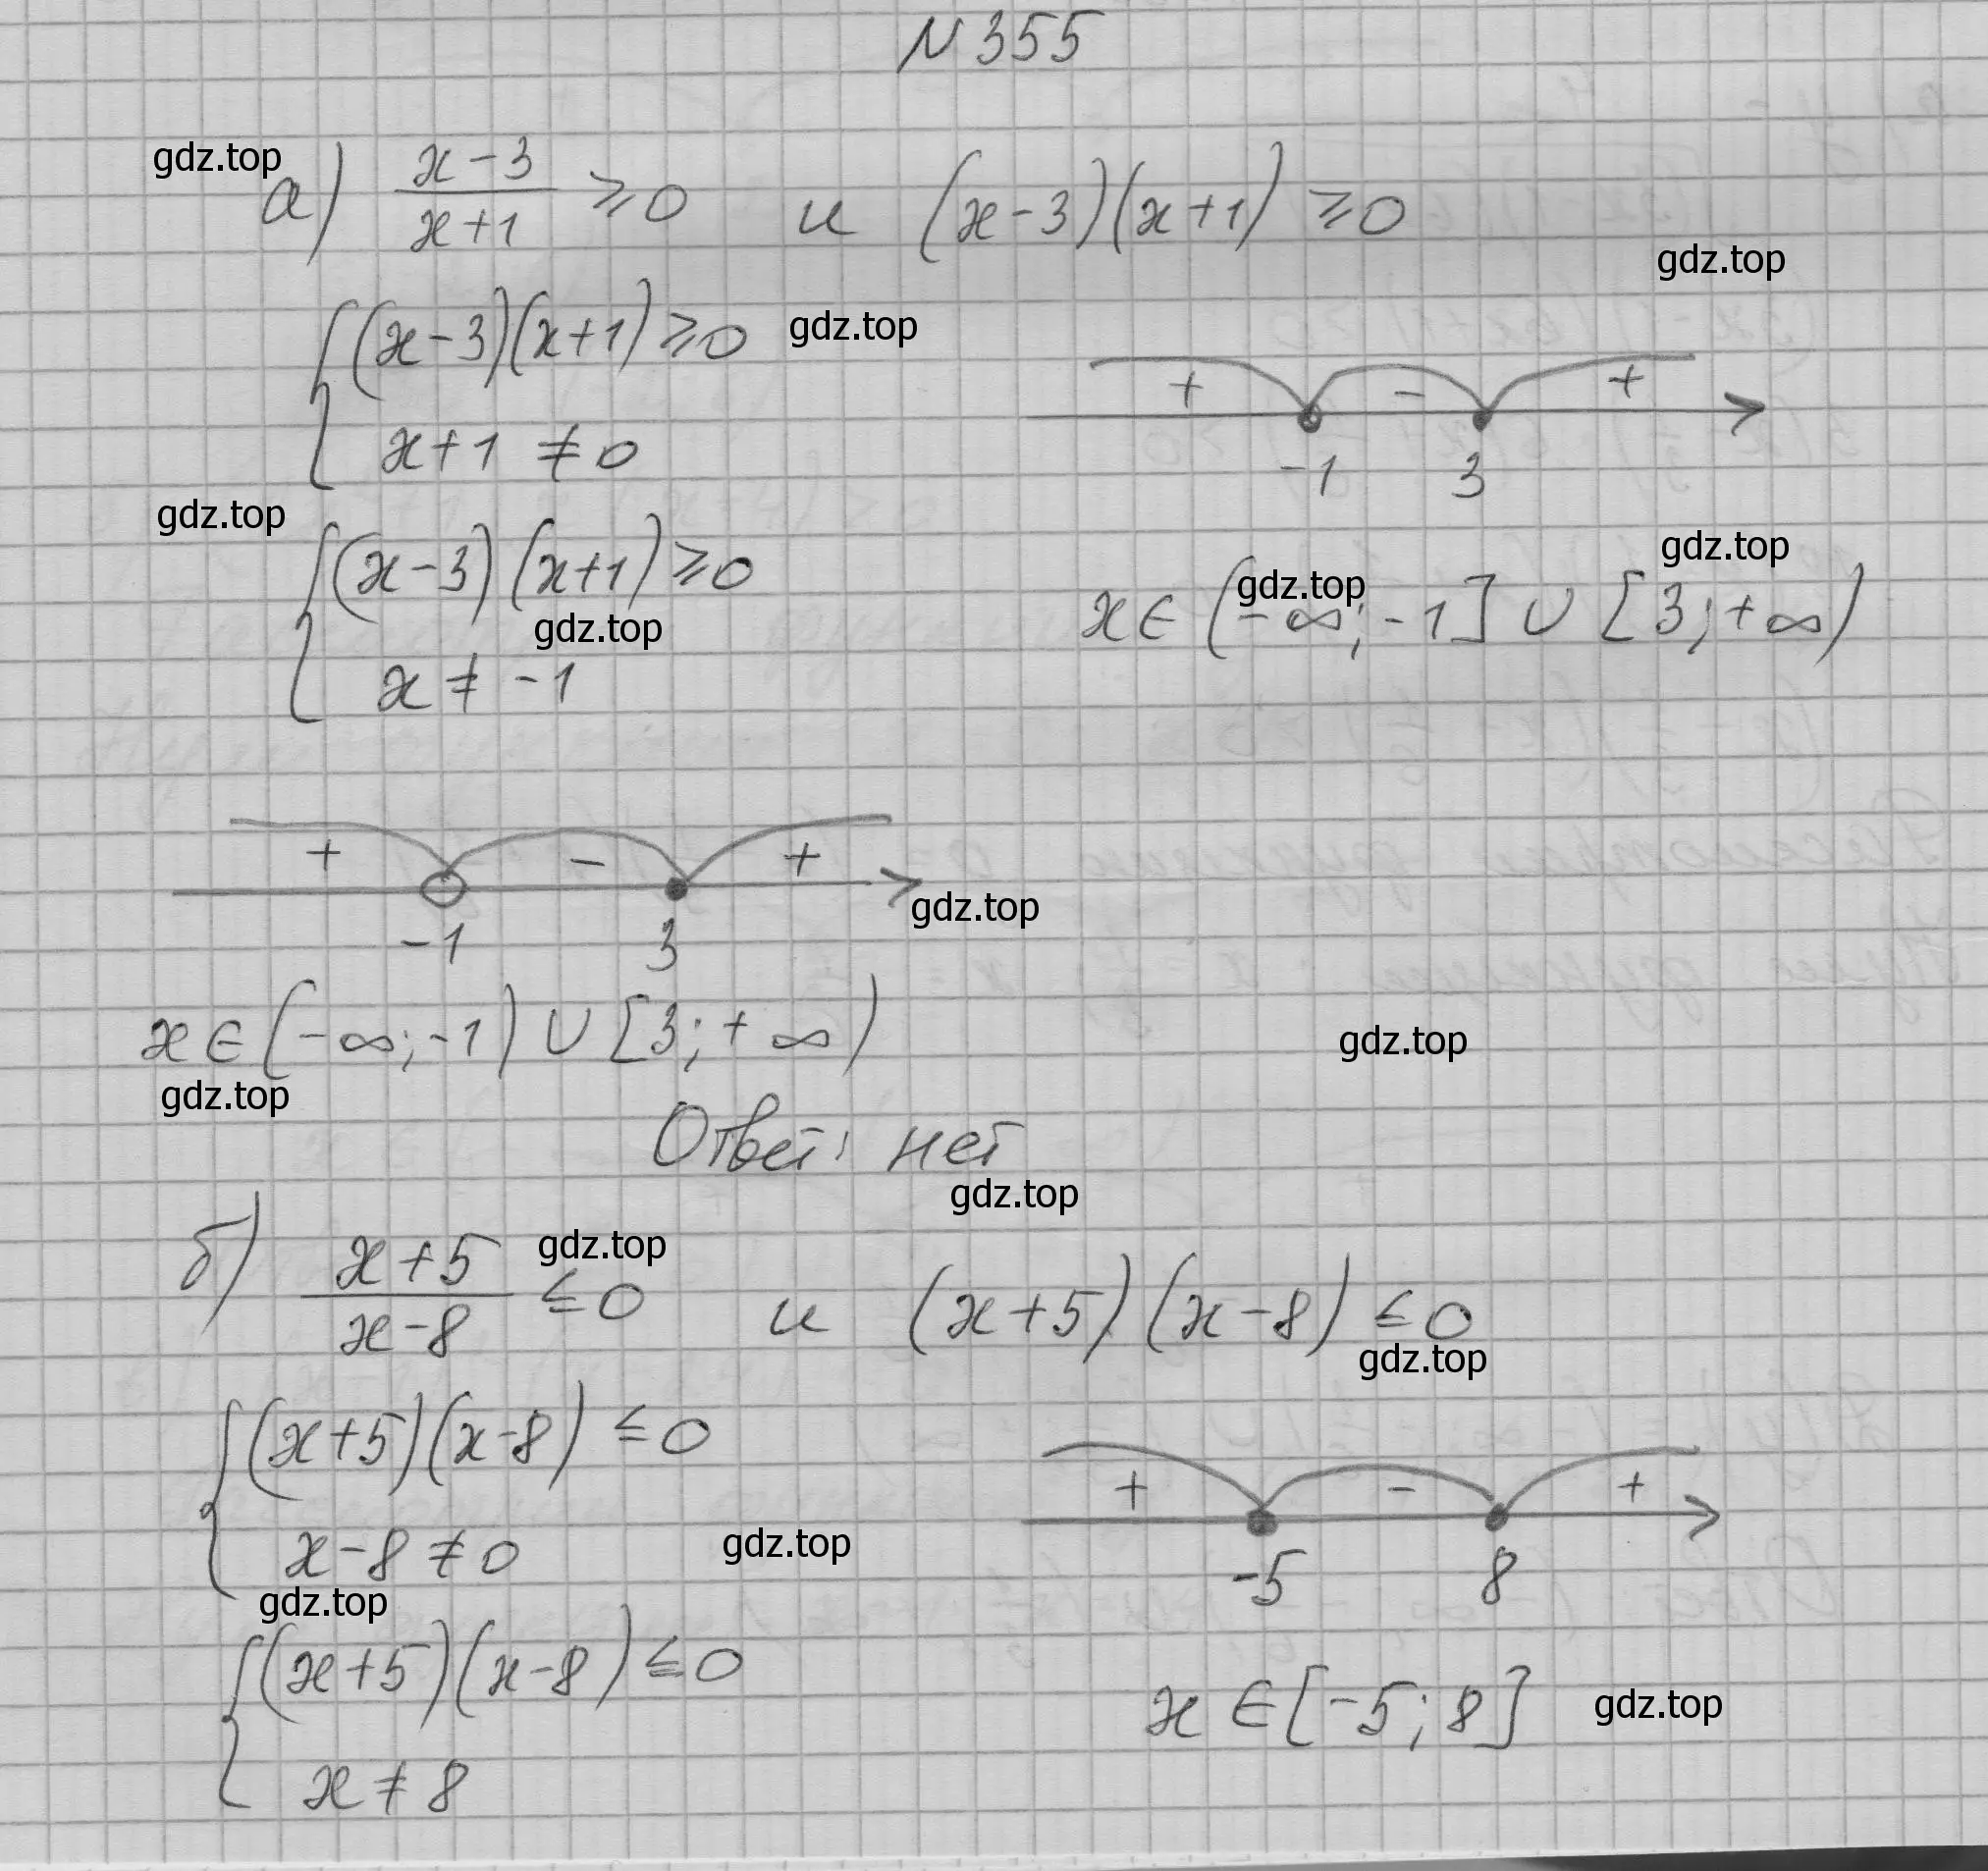 N 355
gdz.top
а) (x-3)/(x+1) ≥ 0 и (x-3)(x+1) ≥ 0
gdz.top
{ (x-3)(x+1) ≥ 0
gdz.top
x+1 ≠ 0
+ - +
-1 3
gdz.top
{ (x-3)(x+1) ≥ 0
gdz.top
x ≠ -1
gdz.top
gdz.top
x ∈ (-∞; -1] ∪ [3; +∞)
+ - +
gdz.top
-1 3
x ∈ (-∞; -1) ∪ [3; +∞)
gdz.top
gdz.top
Ответ: нет
gdz.top
б) (x+5)/(x-8) ≤ 0 и (x+5)(x-8) ≤ 0
gdz.top
gdz.top
{ (x+5)(x-8) ≤ 0
x-8 ≠ 0
gdz.top
+ - +
-5 8
gdz.top
{ (x+5)(x-8) ≤ 0
x ≠ 8
x ∈ [-5; 8]
gdz.top